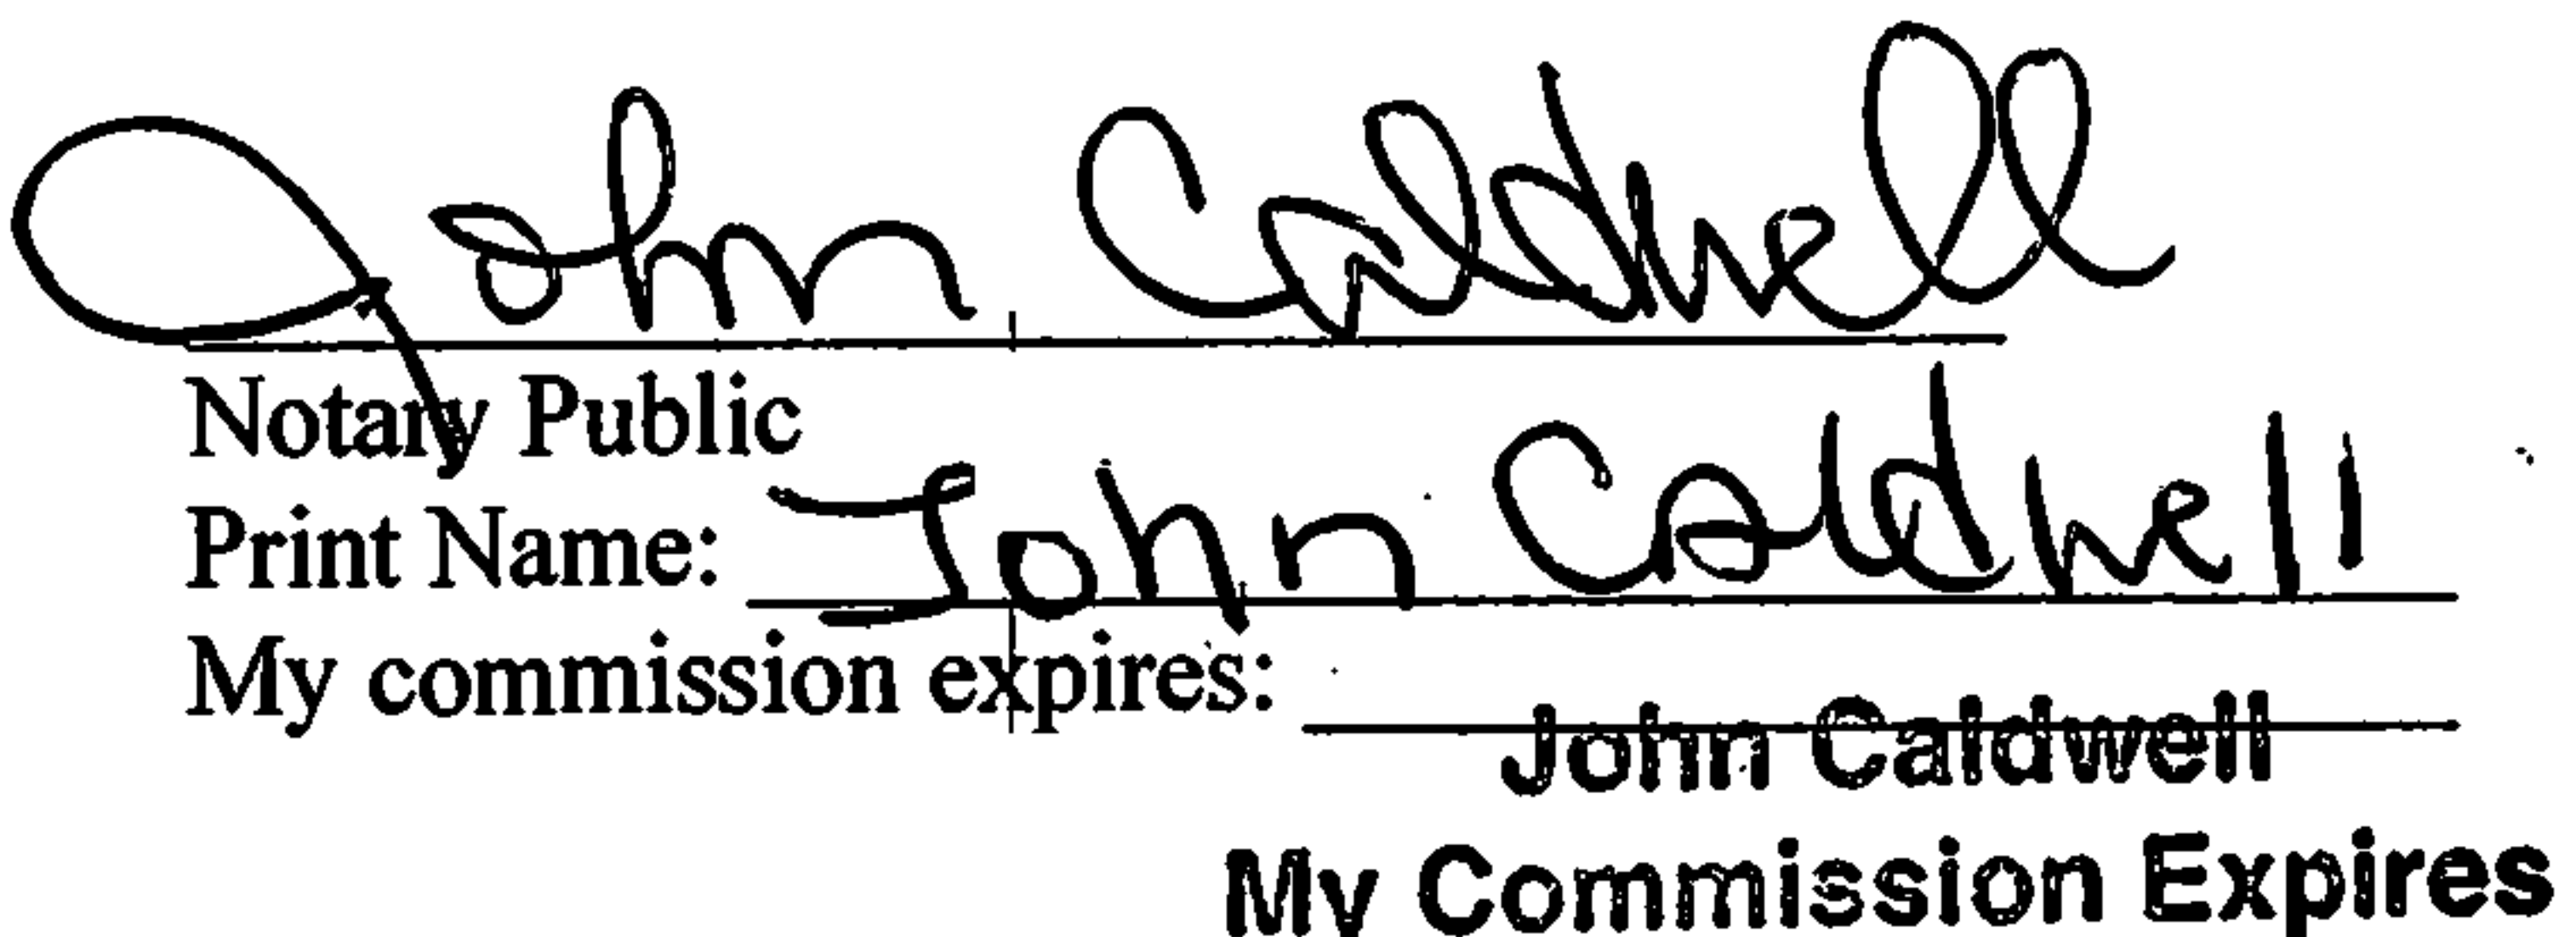 John Caldwell
Notary Public
Print Name: John Caldwell
My commission expires:
John Caldwell
My Commission Expires